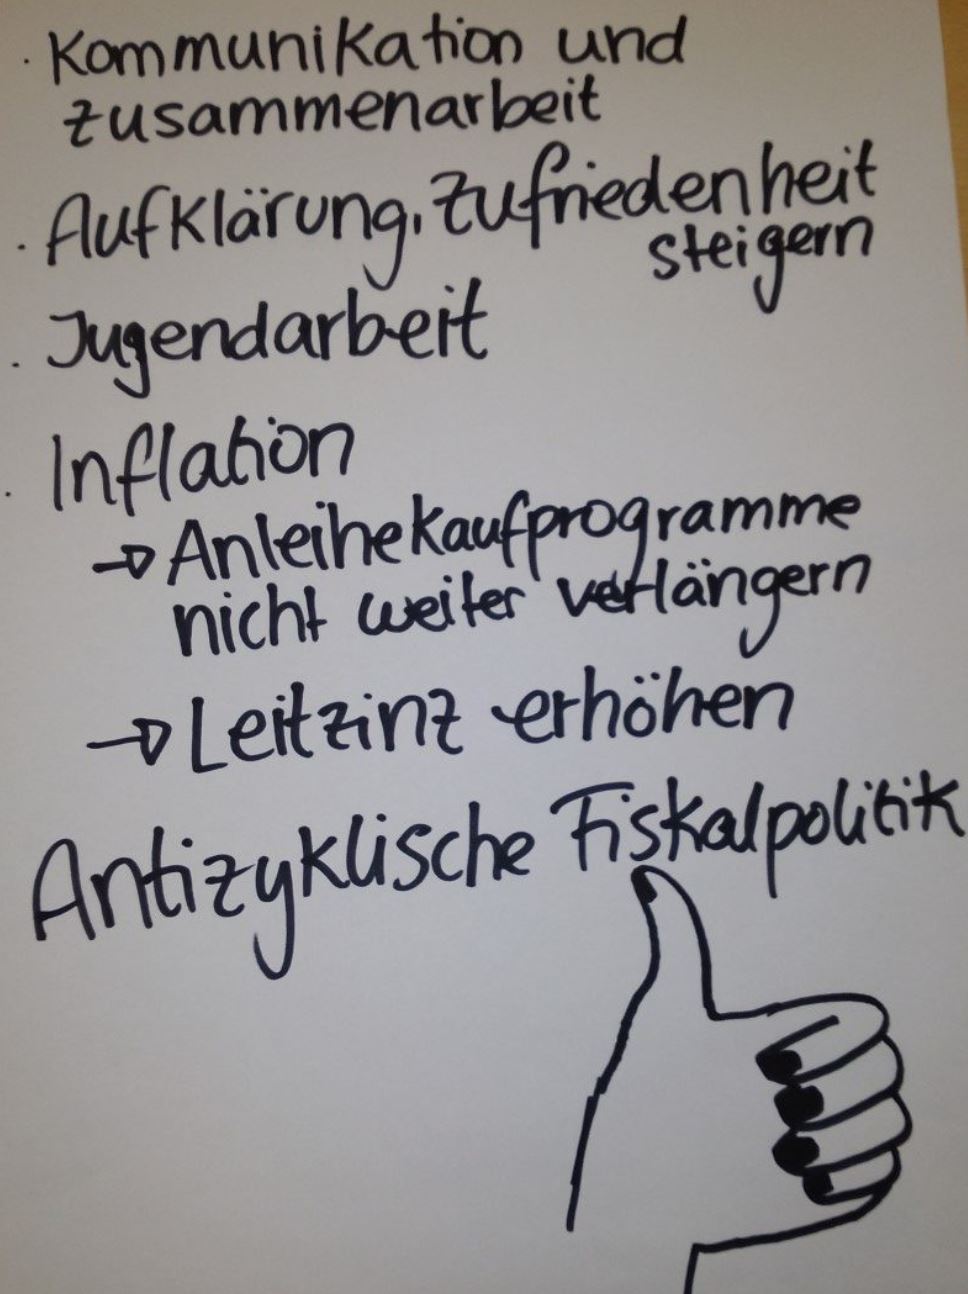 · Kommunikation und
zusammenarbeit
· Aufklärung, Zufriedenheit
steigern
· Jugendarbeit
· Inflation
→ Anleihekaufprogramme
nicht weiter verlängern
→ Leitzinz erhöhen
Antizyklische Fiskalpolitik